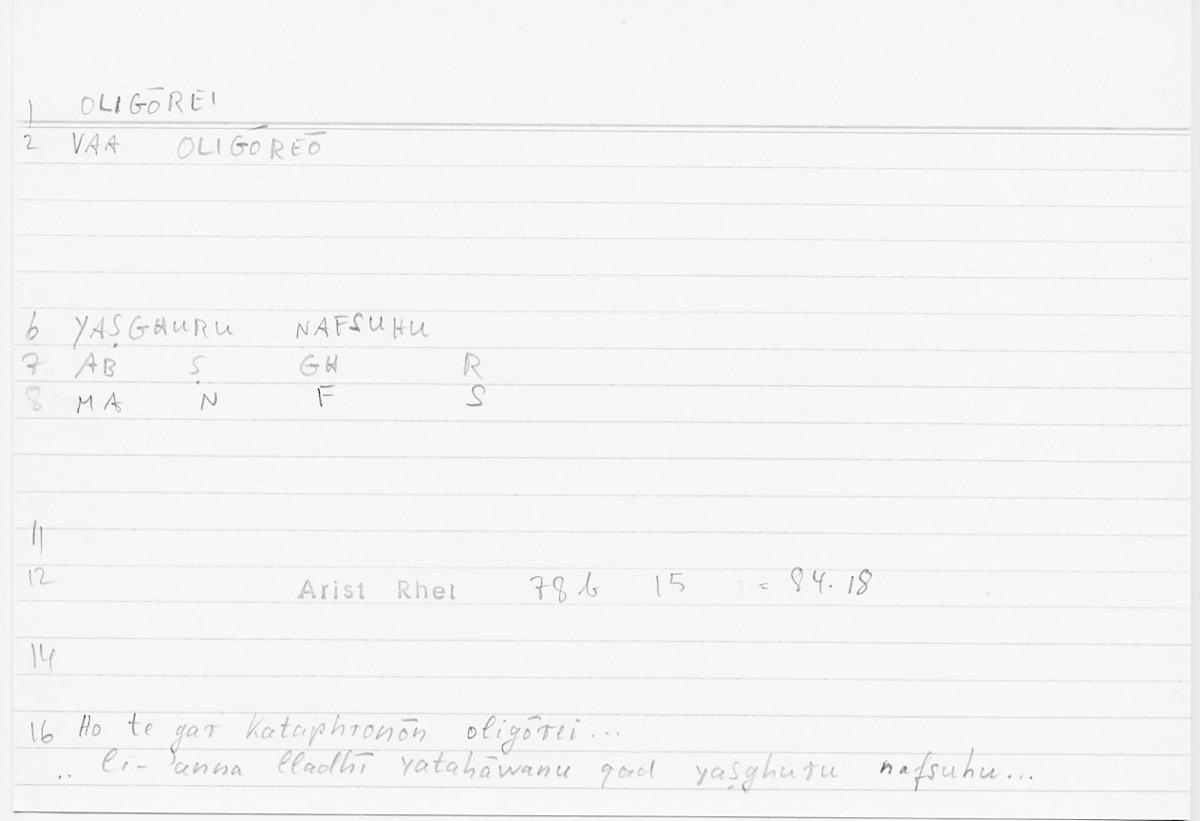 1 OLIGŌREI
2 VAA OLIGŌREŌ
6 YAṢGHURU NAFSUHU
7 AB Ṣ GH R
8 MA N F S
11
12 Arist Rhet 78b 15 = 84.18
14
16 Ho te gar kataphronōn oligōrei...
.. li-ʾanna lladhī yatahāwanu qad yaṣghuru nafsuhu...